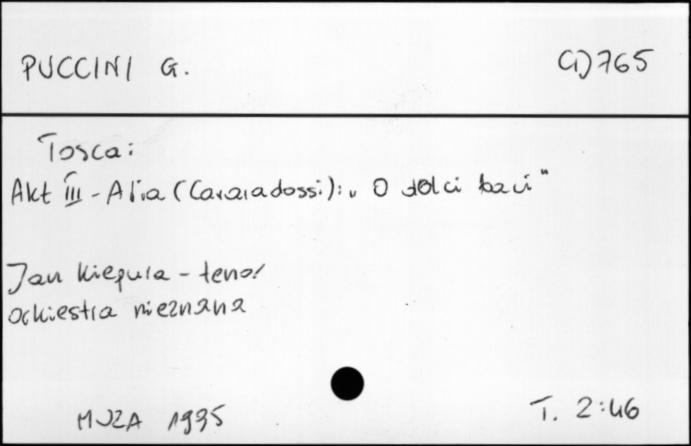 PUCCINI G.
CD 765
Tosca:
Akt III - Aria (Cavaradossi): „O dolci baci"
Jan Kiepura - tenor
orkiestra nieznana
MUZA 1995
T. 2:46